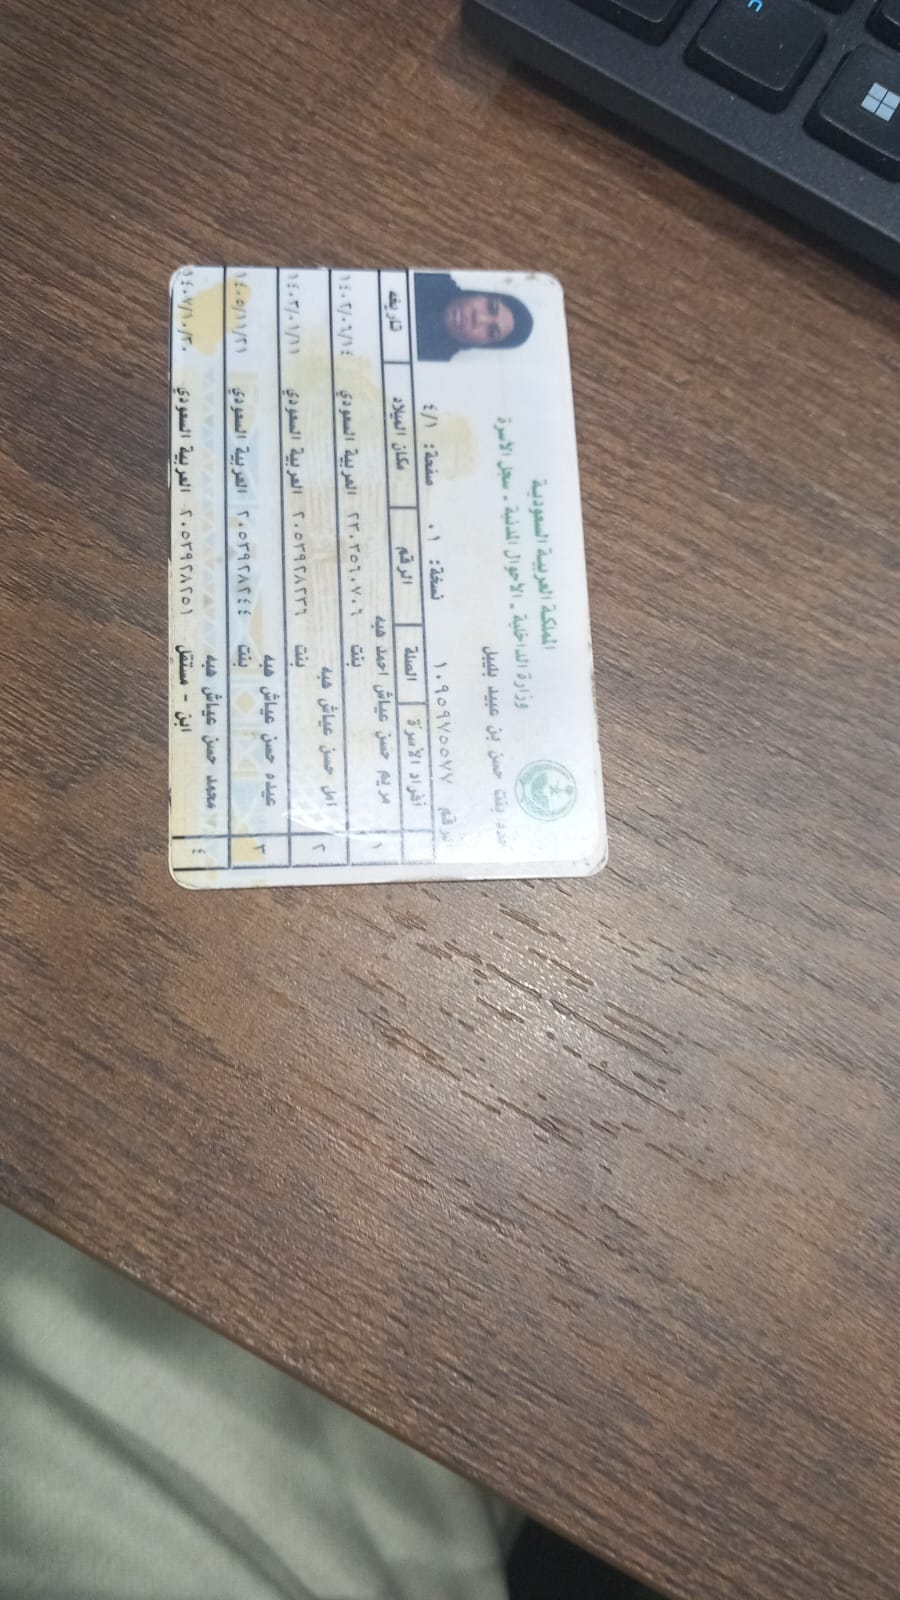 المملكة العربية السعودية
وزارة الداخلية - الاحوال المدنية - سجل الاسرة
بنت حسن بن عبيد بليبل
رقم ١٠٩٥٩٧٥٥٧٧ نسخة: ٠١ صفحة: ٤/١
أفراد الأسرة الصلة الرقم مكان الميلاد تاريخه
١ مريم حسن عياش احمد هبه
بنت ٢٢٠٣٥٦٠٧٠٦ العربية السعودي ١٤٠٢/٠٦/١٤
٢ امل حسن عياش هبه
بنت ٢٠٥٣٩٢٨٢٣٦ العربية السعودي ١٤٠٣/٠١/١١
٣ عيده حسن عياش هبه
بنت ٢٠٥٣٩٢٨٢٤٤ العربية السعودي ١٤٠٥/١١/٢١
٤ محمد حسن عياش هبه
ابن - مستقل ٢٠٥٣٩٢٨٢٥١ العربية السعودي ١٤٠٧/١٠/٢٠